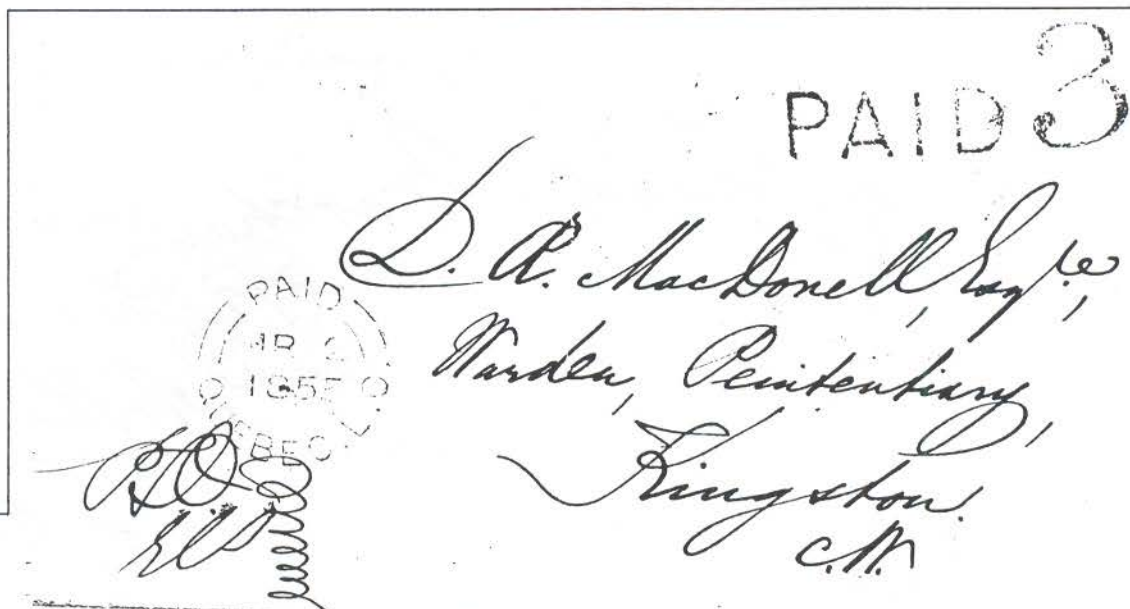 PAID 3
D. A. MacDonell, Esqre,
Warden, Penitentiary,
Kingston.
C.W.
PAID
QUEBEC L.C.